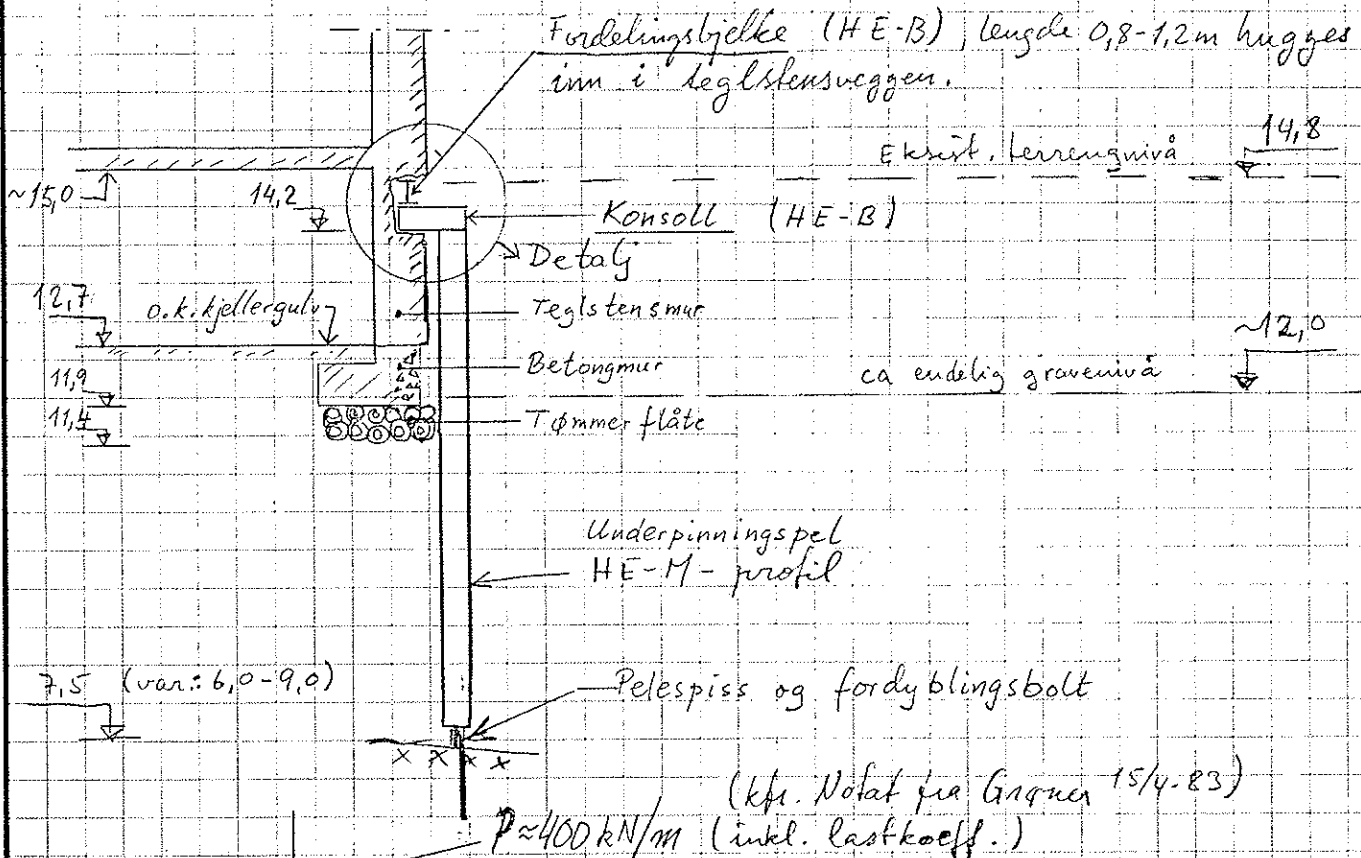 Fordelingsbjelke (HE-B), lengde 0,8-1,2m hugges
inn i teglstensveggen.
14,8
Eksist. terrengnivå
~15,0
14,2
Konsoll (HE-B)
Detalj
12,7
o.k. kjellergulv
Teglstensmur
~12,0
Betongmur
ca endelig gravenivå
11,9
11,4
Tømmerflåte
Underpinningspel
HE-M-profil
7,5 (var.: 6,0-9,0)
Pelespiss og fordyblingsbolt
(kfr. Notat fra Grøner 15/4-83)
P≈400 kN/m (inkl. lastkoeff.)